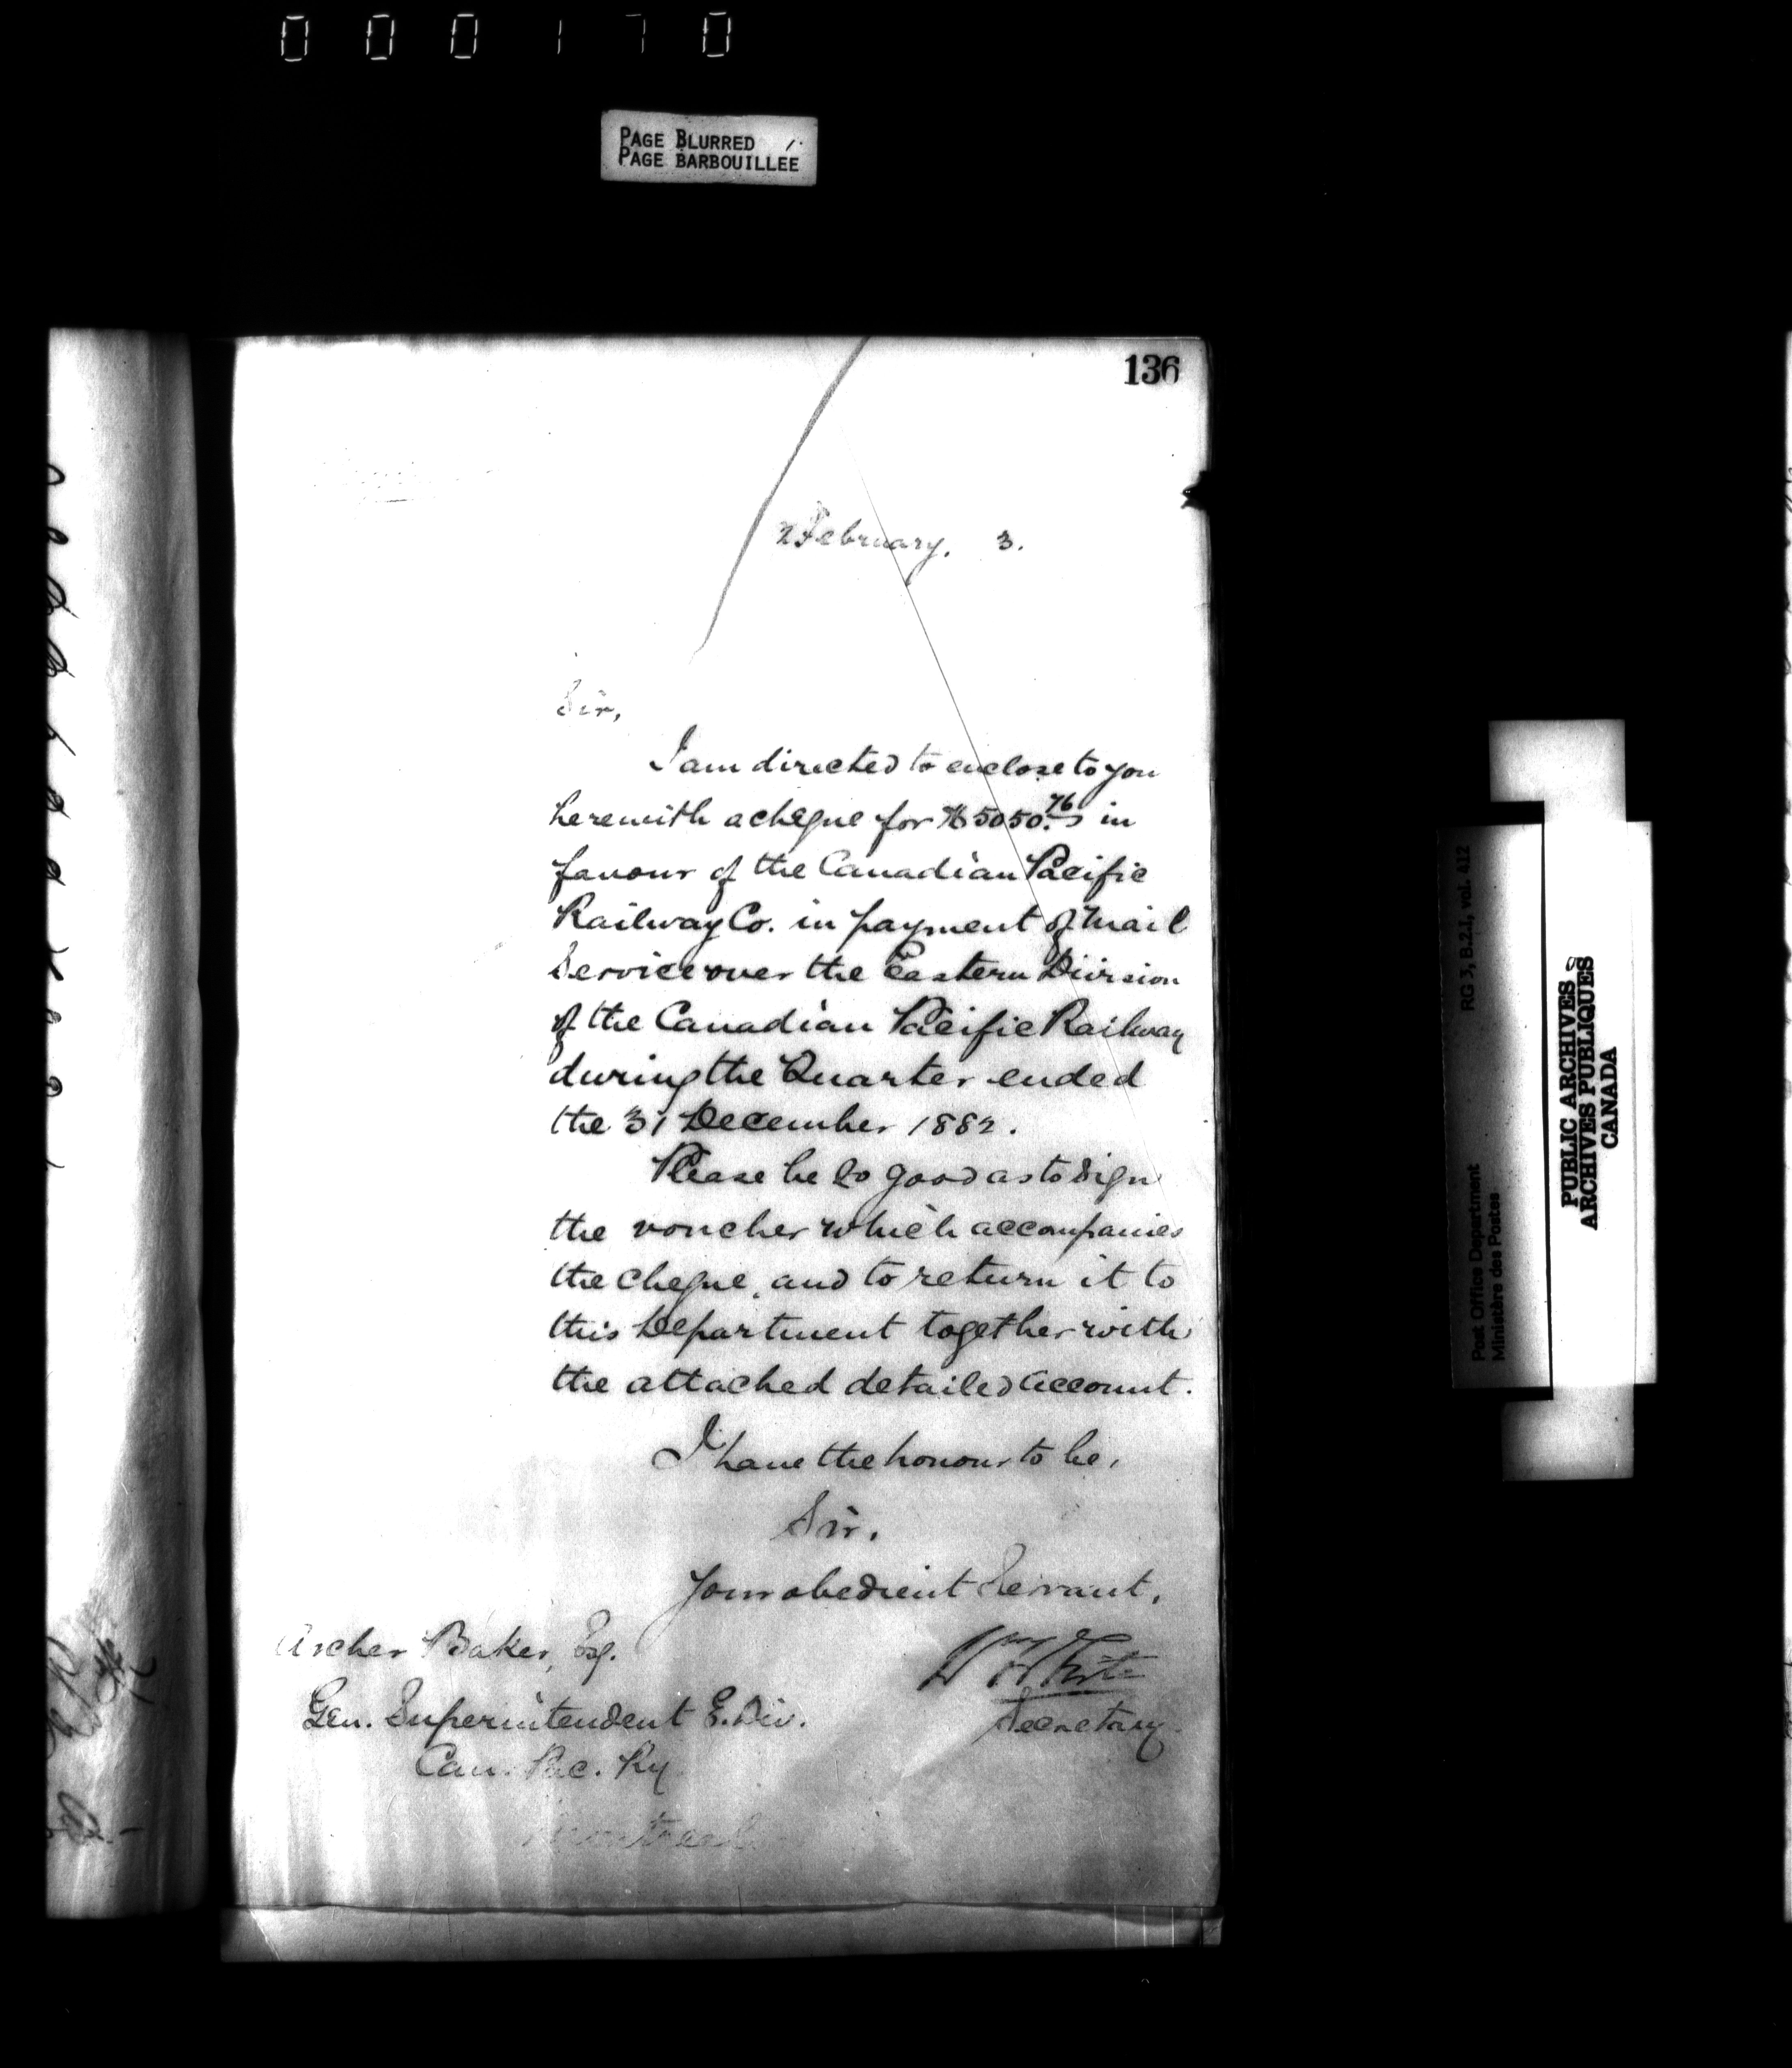 000170
PAGE BLURRED
PAGE BARBOUILLÉE
136
2 February, 3.
Sir,
I am directed to enclose to you
herewith a cheque for $5050.76 in
favour of the Canadian Pacific
Railway Co. in payment of Mail
Service over the Eastern Division
of the Canadian Pacific Railway
during the Quarter ended
the 31 December 1882.
Please be so good as to sign
the voucher which accompanies
the cheque, and to return it to
this Department together with
the attached detailed account.
I have the honour to be,
Sir,
Your obedient Servant,
Wm White
Secretary
Archer Baker, Esq.
Gen. Superintendent E. Div.
Can. Pac. Ry
Montreal
RG 3, B.2.1, vol. 412
Post Office Department
Ministère des Postes
PUBLIC ARCHIVES
ARCHIVES PUBLIQUES
CANADA